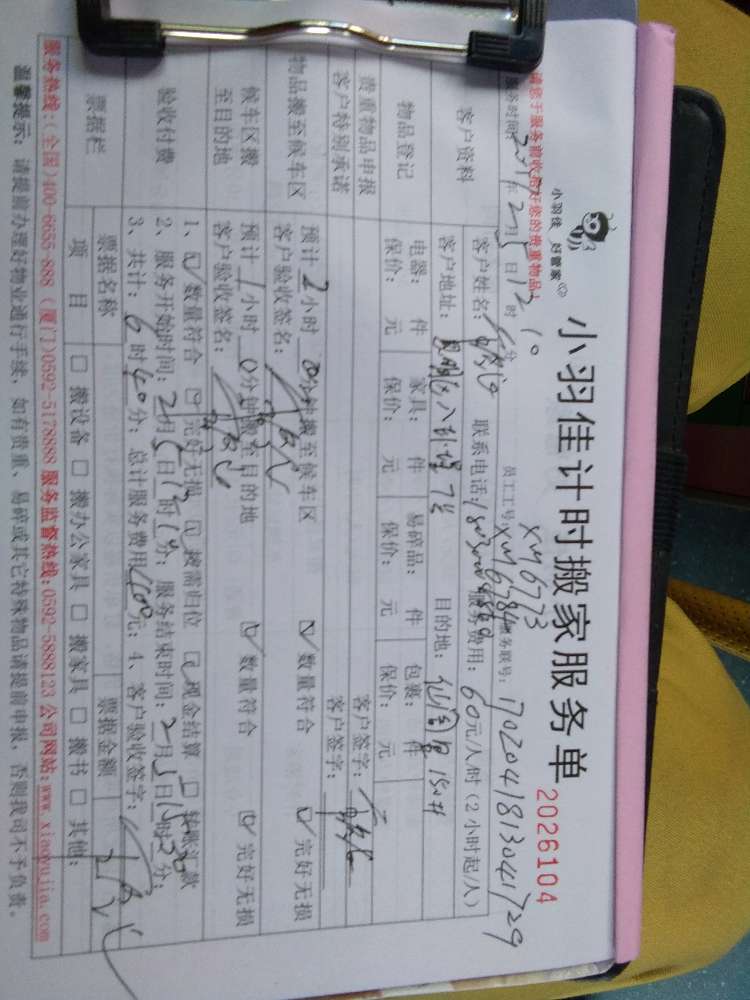 小羽佳 好管家
小羽佳计时搬家服务单
2026104
请您于服务前收拾好您的贵重物品!
员工工号: XM6773
XM6784
服务联号: 17020418130041729
服务时间: 年 2月5日12时10分
客户资料
客户姓名:
联系电话:
服务费用: 60元/人/时(2小时起/人)
客户地址: 八卦埕7号
目的地:
物品登记
电器: 件 家具: 件 易碎品: 件 包裹: 件
保价: 元 保价: 元 保价: 元 保价: 元
贵重物品申报
客户签字:
客户特别承诺
客户签字:
物品搬至候车区
预计 2小时 0分钟搬至候车区
☑数量符合 ☑完好无损
客户验收签名:
候车区搬至目的地
预计 1小时 0分钟搬至目的地
☑数量符合 ☑完好无损
客户验收签名:
验收付费
1、☑数量符合 ☑完好无损 ☑按需归位 ☑现金结算 □转账汇款
2、服务开始时间: 2月5日 时 分; 服务结束时间: 2月5日 时 分;
3、共计: 6时40分; 总计服务费用 400元; 4、客户验收签字:
票据栏
票据名称
票据金额
项目 □搬设备 □搬办公家具 □搬家具 □搬书 □其他:
服务热线:(全国)400-6655-888 (厦门)0592-5178888 服务监督热线:0592-5888123 公司网站:www.xiaoyujia.com
温馨提示: 请提前办理好物业进行手续, 如有贵重、易碎或其它特殊物品请提前申报, 否则我司不予负责。